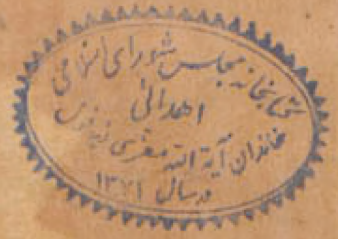 کتابخانه مجلس شورای اسلامی
اهدائی
خاندان آیة الله مقدس
در سال ۱۳۷۱